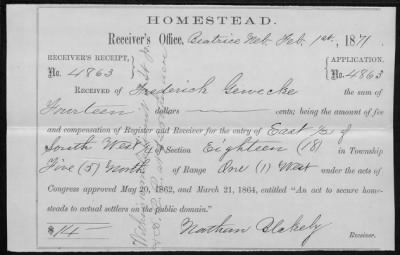 HOMESTEAD.
Receiver's Office, Beatrice Neb. Feb. 1st, 1871.
RECEIVER'S RECEIPT, No. 4863
APPLICATION. No. 4863
RECEIVED OF Frederick Gewecke the sum of
Fourteen dollars cents; being the amount of fee
and compensation of Register and Receiver for the entry of East 1/2 of
South West 1/4 of Section Eighteen (18) in Township
Five (5) North of Range One (1) West under the acts of
Congress approved May 20, 1862, and March 21, 1864, entitled "An act to secure home-
steads to actual settlers on the public domain."
$ 14 — Nathan Blakely
Receiver.